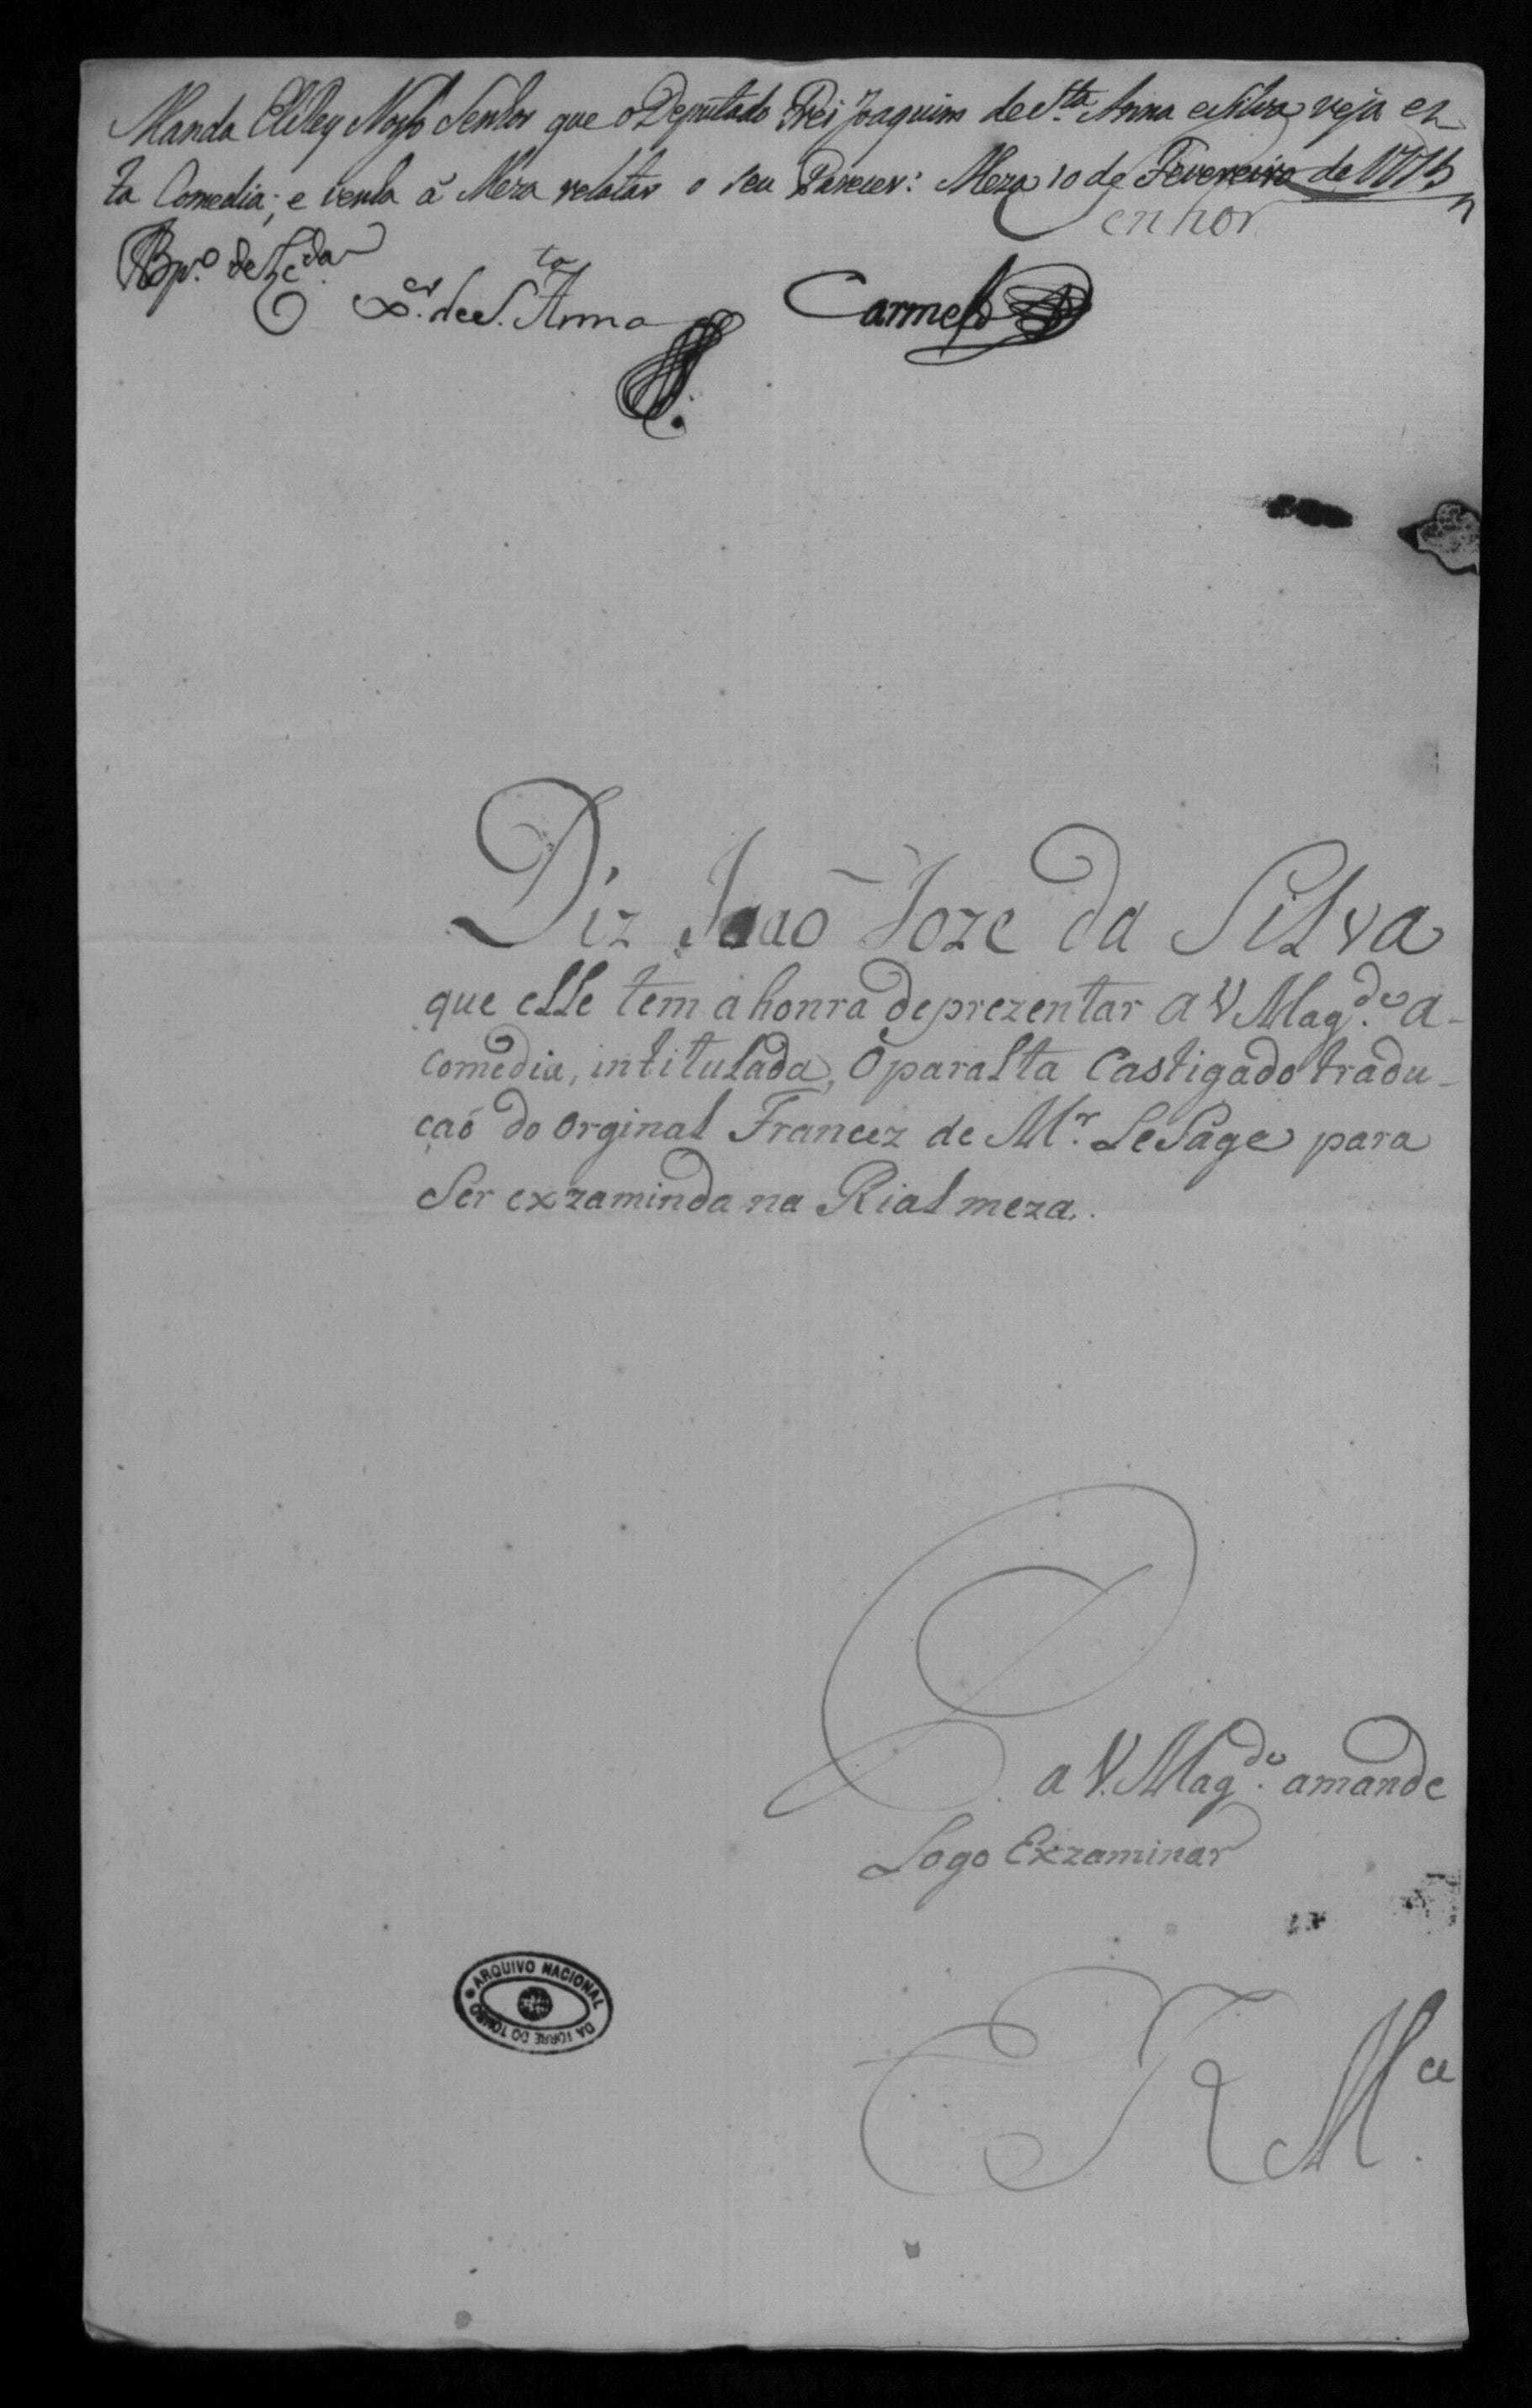 Manda ElRey Nosso Senhor que o Deputado Frei Joaquim de S.ta Anna e Silva veja es
ta Comedia; e venha á Meza relatar o seu Parecer: Meza 10 de Fevereiro de 1775
Senhor
Bpo. de
X.er de S.ta Anna
Carmelo
Diz Joaõ Joze da Silva
que elle tem a honra de prezentar a V Mag.de a-
comedia, intitulada, O paralta Castigado tradu-
çaó do orginal Francez de M.r Le Sage para
Ser exzaminda na Rial meza.
P. a V. Mag.de a mande
Logo Exzaminar
E R M.ce
ARQUIVO NACIONAL DA TORRE DO TOMBO